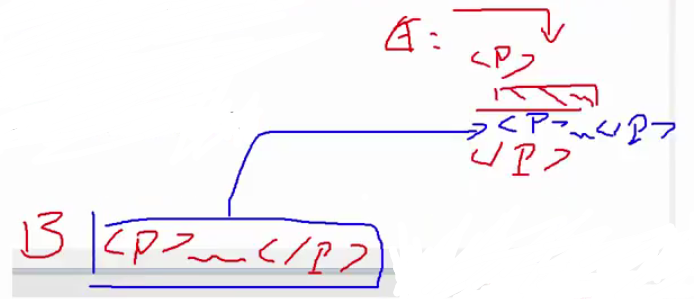 A:
<P>
<P>~</P>
</P>
B <P>~</P>